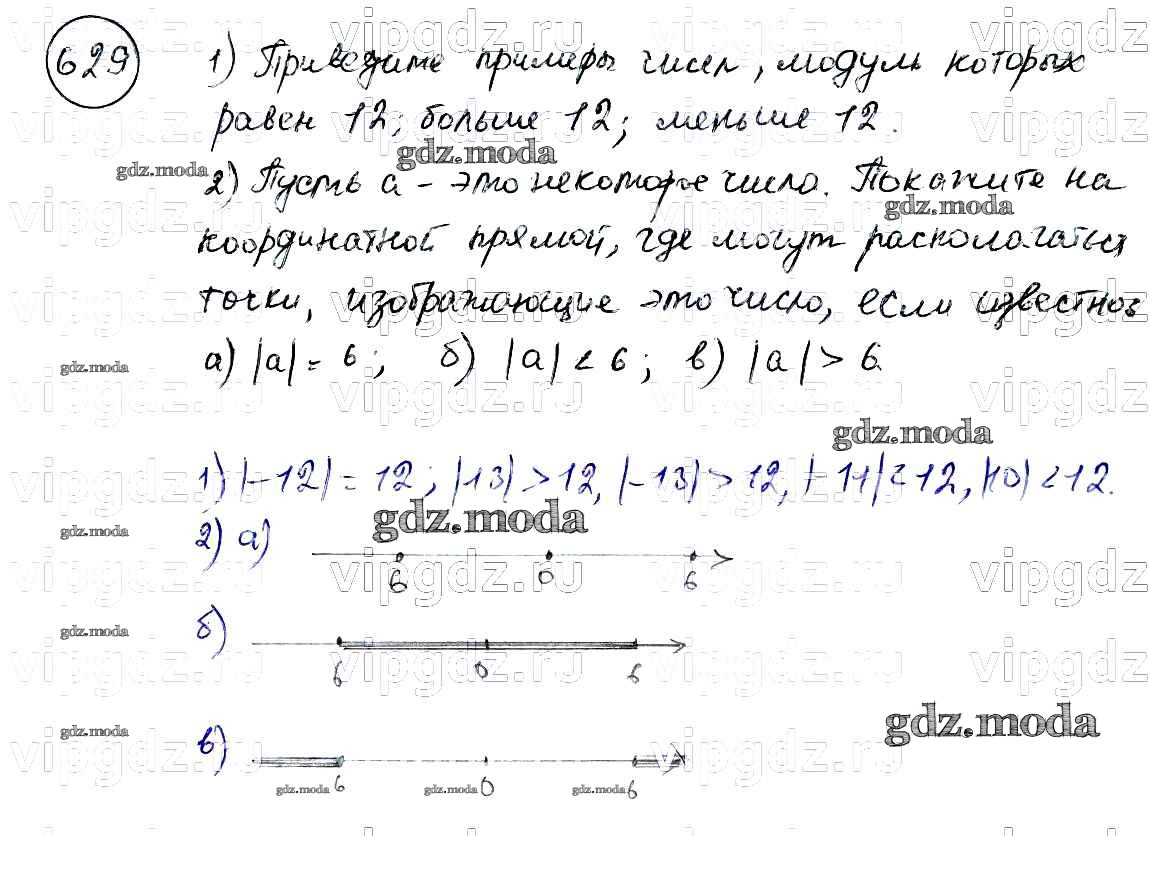 629
1) Приведите примеры чисел, модуль которых
равен 12; больше 12; меньше 12.
2) Пусть a - это некоторое число. Покажите на
координатной прямой, где могут располагаться
точки, изображающие это число, если известно
а) |a| = 6; б) |a| < 6; в) |a| > 6.
1) |-12| = 12; |13| > 12, |-13| > 12, |-11| < 12, |10| < 12.
2) а)
6 0 6
б)
6 0 6
в)
6 0 6
vipgdz.ru
gdz.moda